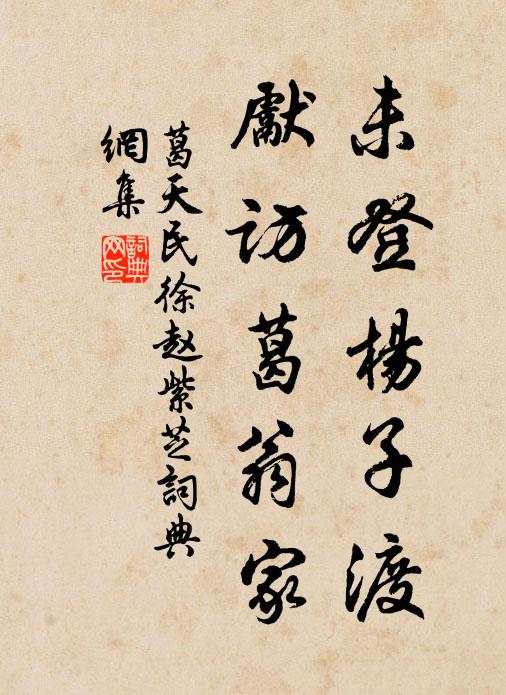 未登楊子渡
獻訪葛翁家
葛天民徐赵紫芝詞典
網集
詞典
网印